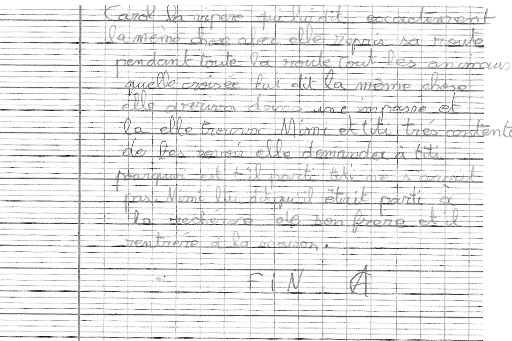 Carok la vipere qui lui dit exactement
la même chose avec elle repris sa route
pendant toute la route tout les animaux
quelle croisée lui dit la même chose
Elle arriva dans une impasse et
la elle trouva Mimi et titi très contente
de les revoir elle demander à titi
pourquoi est t'il parti titi ne
pas Mimi lui dit qu'il était parti à
la recherche de son frere et il
rentrère à la maison.
FiN